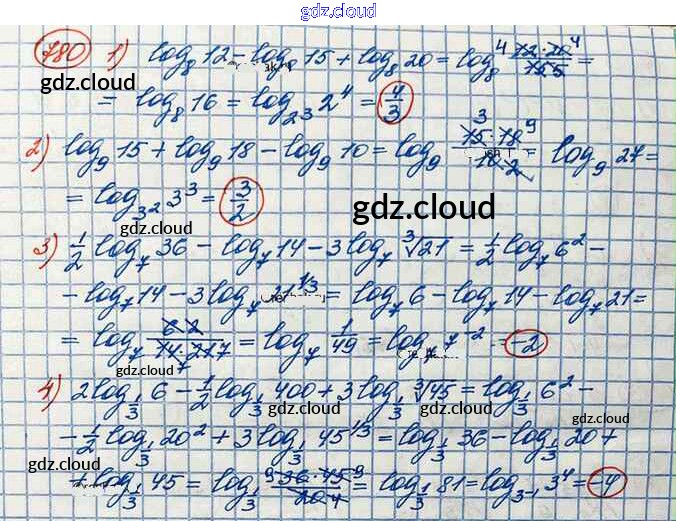 gdz.cloud
780 1) log₈ 12 - log₈ 15 + log₈ 20 = log₈ (12·20)/15 =
= log₈ 16 = log_{2³} 2⁴ = 4/3
2) log₉ 15 + log₉ 18 - log₉ 10 = log₉ (15·18)/10 = log₉ 27 =
= log_{3²} 3³ = 3/2
gdz.cloud
3) 1/2 log₇ 36 - log₇ 14 - 3 log₇ ∛21 = 1/2 log₇ 6² -
- log₇ 14 - 3 log₇ 21^{1/3} = log₇ 6 - log₇ 14 - log₇ 21 =
= log₇ 6/(14·21) = log₇ 1/49 = log₇ 7⁻² = -2
gdz.cloud
4) 2 log_{1/3} 6 - 1/2 log_{1/3} 400 + 3 log_{1/3} ∛45 = log_{1/3} 6² -
gdz.cloud
- 1/2 log_{1/3} 20² + 3 log_{1/3} 45^{1/3} = log_{1/3} 36 - log_{1/3} 20 +
gdz.cloud
+ log_{1/3} 45 = log_{1/3} (36·45)/20 = log_{1/3} 81 = log_{3⁻¹} 3⁴ = -4
gdz.cloud